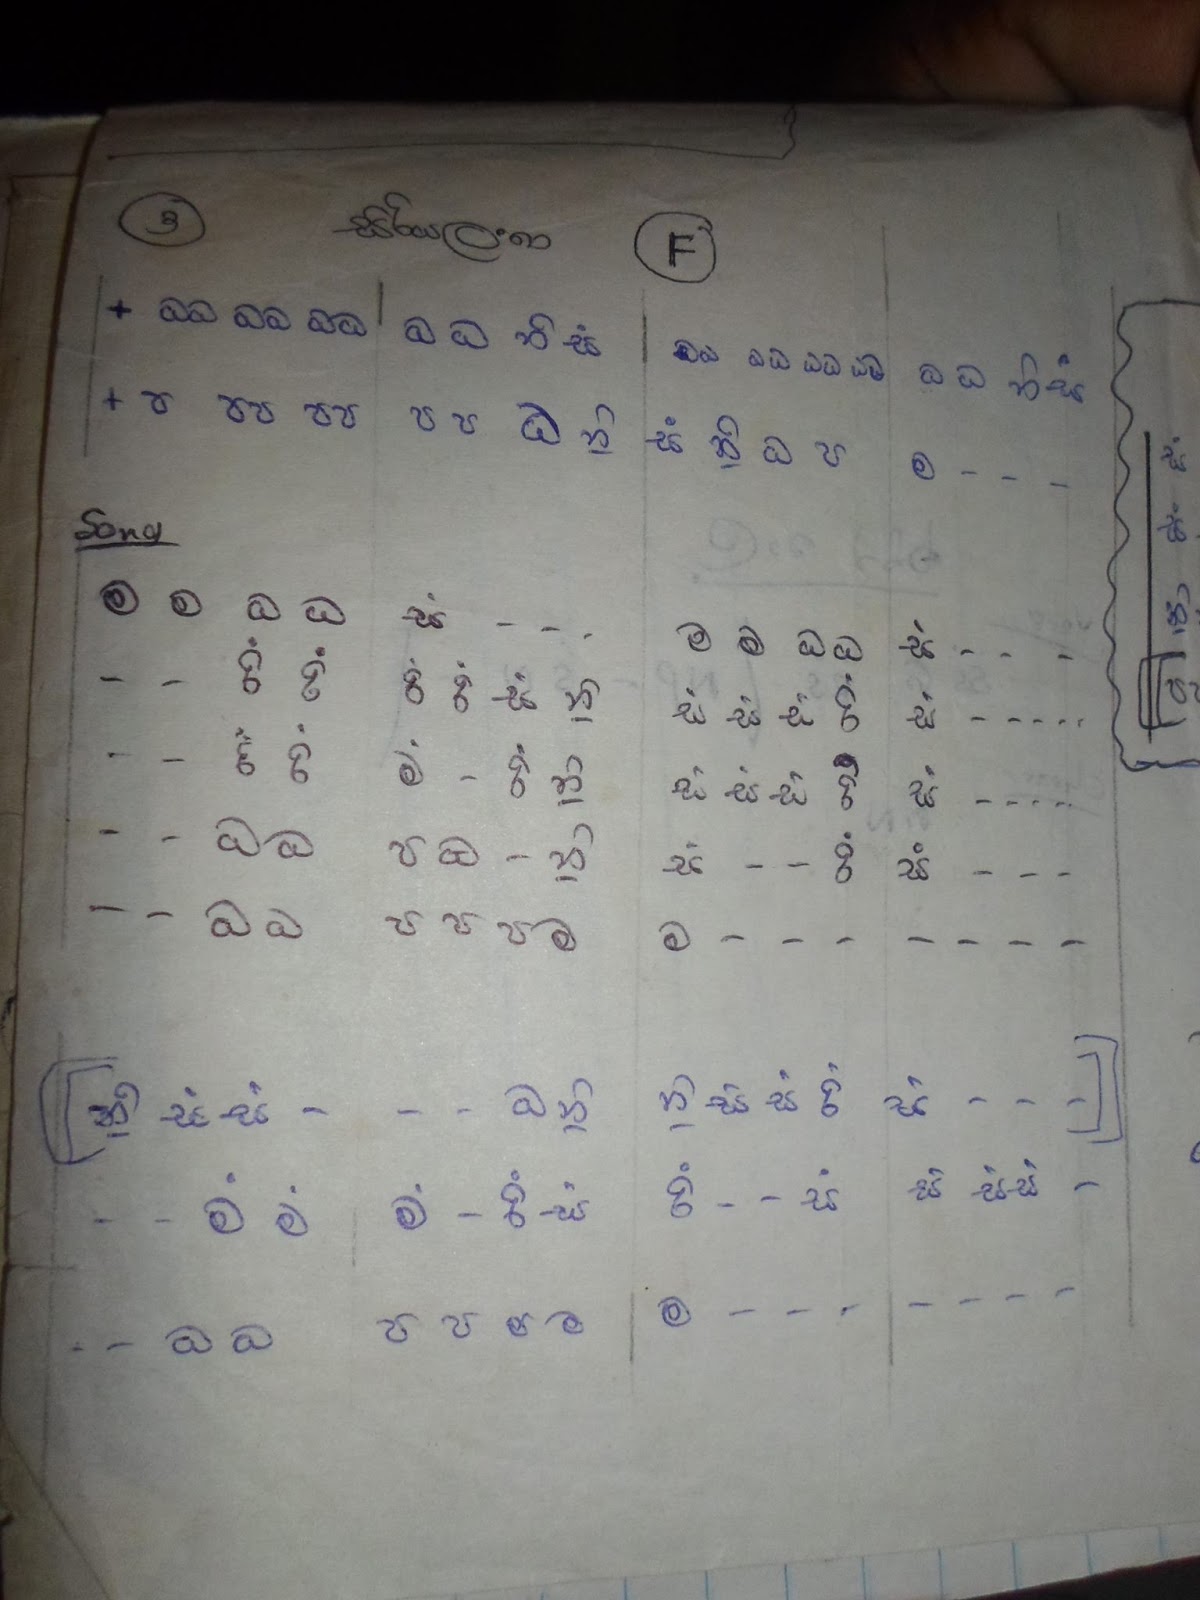 3 සිරියලතා F
+ ධධ ධධ ධධ | ධ ධ නි ස් | ධධ ධධ ධධ ධධ ධ ධ නි ස්
+ ප පප පප ප ප ධ නි සං නි ධ ප ම - - -
Song
ම ම ධ ධ සං - - - ම ම ධ ධ සං - - -
- - රිං රිං රිං රිං සං නි සං සං සං රිං සං - - - - -
- - රිං රිං මං - රිං නි සං සං සං රිං සං - - - -
- - ධ ධ ප ධ - නි සං - - රිං සං - - -
- - ධ ධ ප ප ප ම ම - - - - - - -
[ නි සං සං - - - ධ නි නි සං සං රිං සං - - - ]
- - මං මං මං - රිං සං රිං - - සං සං සංසං -
- - ධ ධ ප ප ප ම ම - - - - - - -